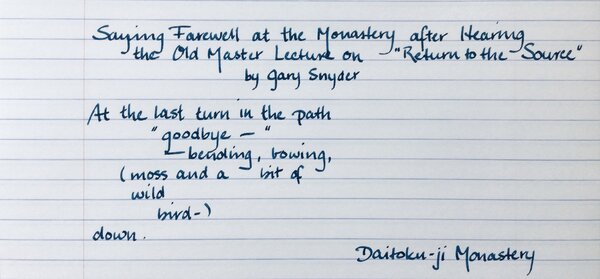 Saying Farewell at the Monastery after Hearing
the Old Master Lecture on "Return to the Source"
by Gary Snyder
At the last turn in the path
"goodbye — "
— bending, bowing,
(moss and a bit of
wild
bird-)
down.
Daitoku-ji Monastery